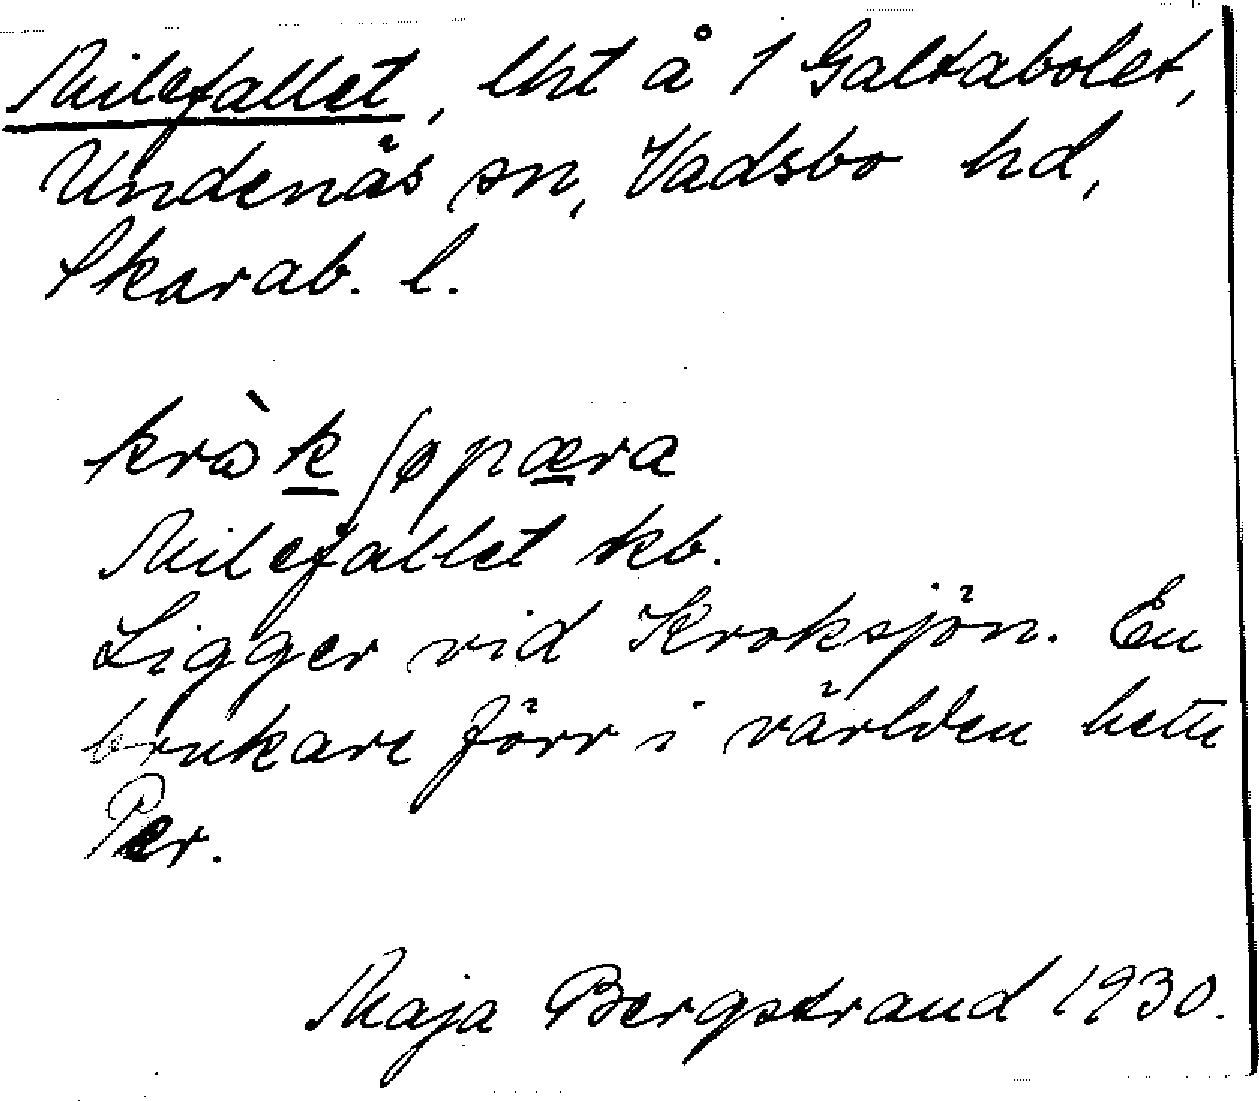 Milefallet, lht å 1 Galtabolet,
Undenäs sn, Vadsbo hd,
Skarab. l.
kràk ʃøpæra
Milefallet kb.
Ligger vid Kroksjön. En
brukare förr i världen hette
Per.
Maja Bergstrand 1930.